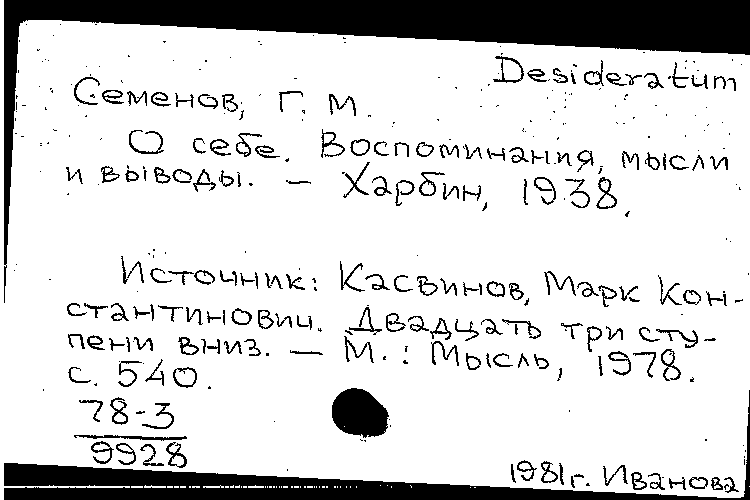 Desideratum
Семенов, Г. М.
О себе. Воспоминания, мысли
и выводы. — Харбин, 1938.
Источник: Касвинов, Марк Кон-
стантинович. Двадцать три сту-
пени вниз. — М.: Мысль, 1978.
с. 540.
78-3
9928
1981г. Иванова